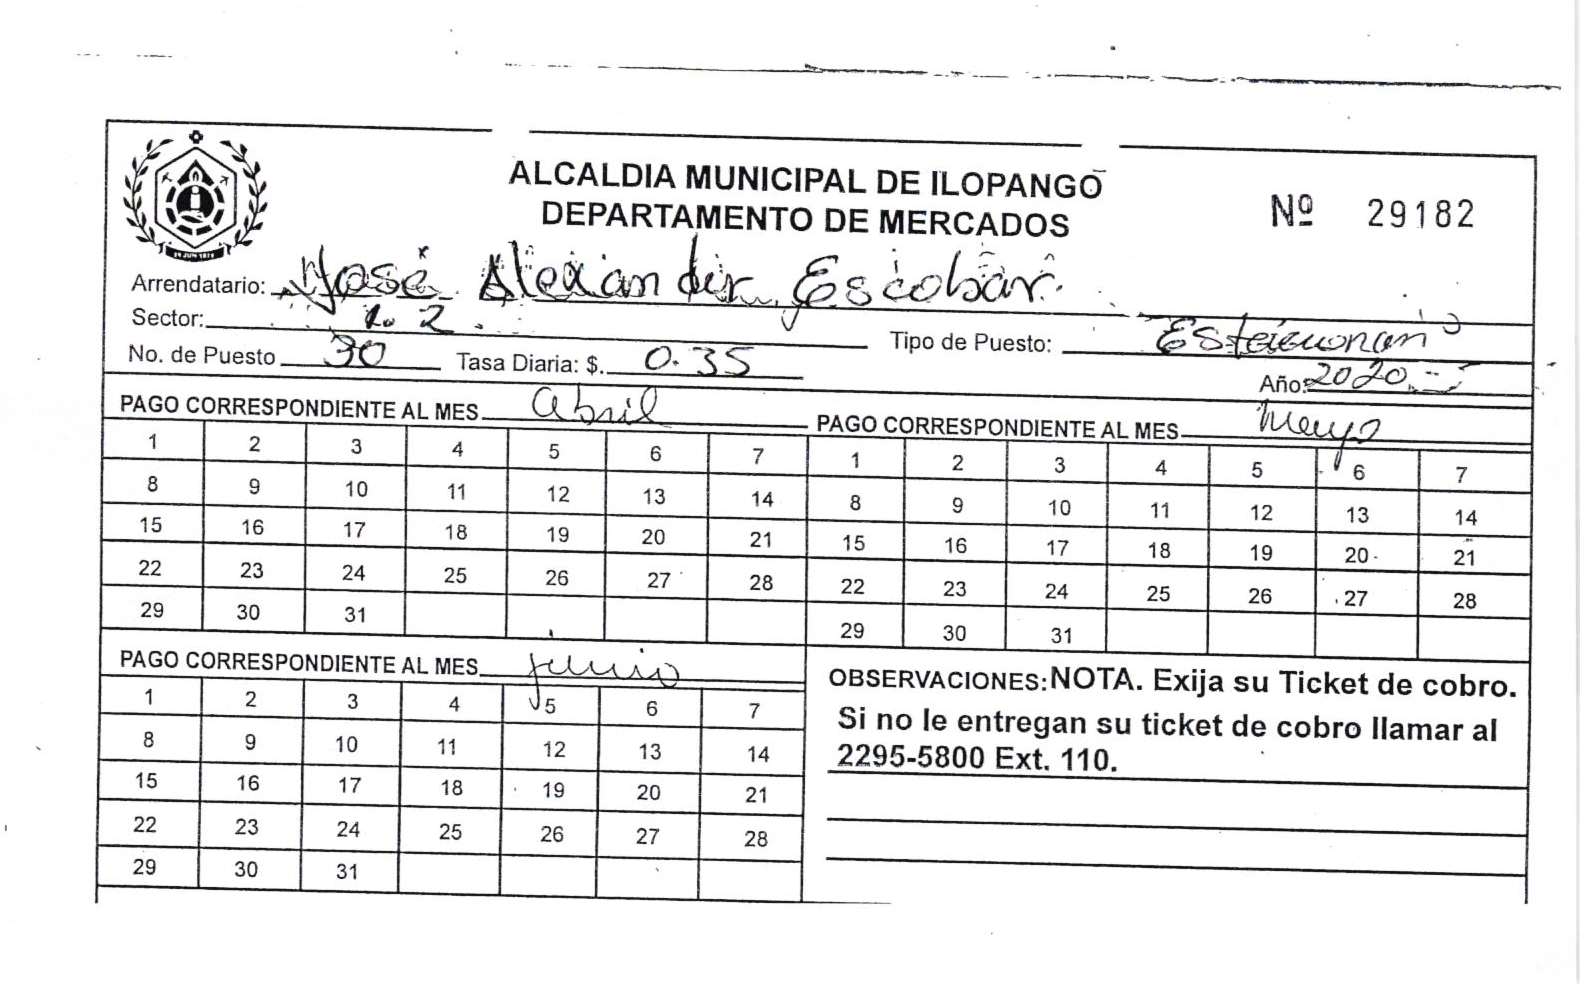 ALCALDIA MUNICIPAL DE ILOPANGO
DEPARTAMENTO DE MERCADOS
Nº 29182
Arrendatario: José Alexander Escobar
Sector: 2
Tipo de Puesto:
No. de Puesto 30 Tasa Diaria: $. 0.35
Año: 2020
PAGO CORRESPONDIENTE AL MES abril
1 2 3 4 5 6 7
8 9 10 11 12 13 14
15 16 17 18 19 20 21
22 23 24 25 26 27 28
29 30 31
PAGO CORRESPONDIENTE AL MES Mayo
1 2 3 4 5 6 7
8 9 10 11 12 13 14
15 16 17 18 19 20 21
22 23 24 25 26 27 28
29 30 31
PAGO CORRESPONDIENTE AL MES junio
1 2 3 4 5 6 7
8 9 10 11 12 13 14
15 16 17 18 19 20 21
22 23 24 25 26 27 28
29 30 31
OBSERVACIONES: NOTA. Exija su Ticket de cobro.
Si no le entregan su ticket de cobro llamar al
2295-5800 Ext. 110.